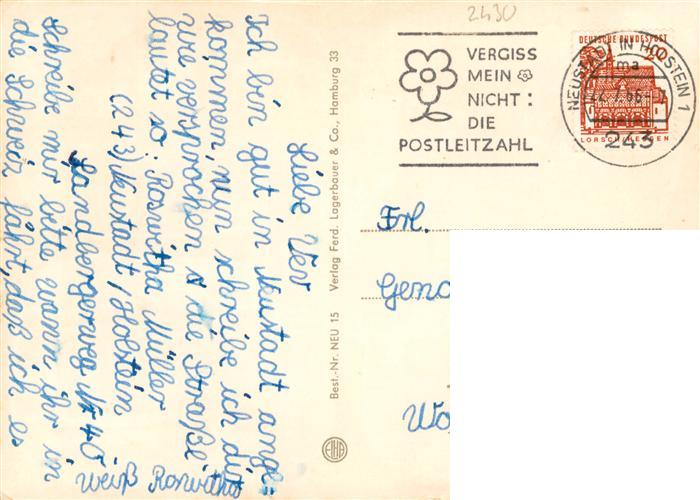 2430
VERGISS
MEIN
NICHT:
DIE
POSTLEITZAHL
DEUTSCHE BUNDESPOST
20
NEUSTADT IN HOLSTEIN 1
ma
243
LORSCH/HESSEN
Frl.
Geno
Wo
Best.-Nr. NEU 15 Verlag Ferd. Lagerbauer & Co., Hamburg 33
EHA
Liebe Vev
Ich bin gut in Neustadt ange=
kommen, nun schreibe ich dir
wie versprochen die Straße
lautet so: Roswitha Müller
(243) Neustadt/Holstein
Sandbergerweg Nr 45
Schreibe mir bitte wann ihr in
die Schweiz fährt, daß ich es
weiß Roswitha